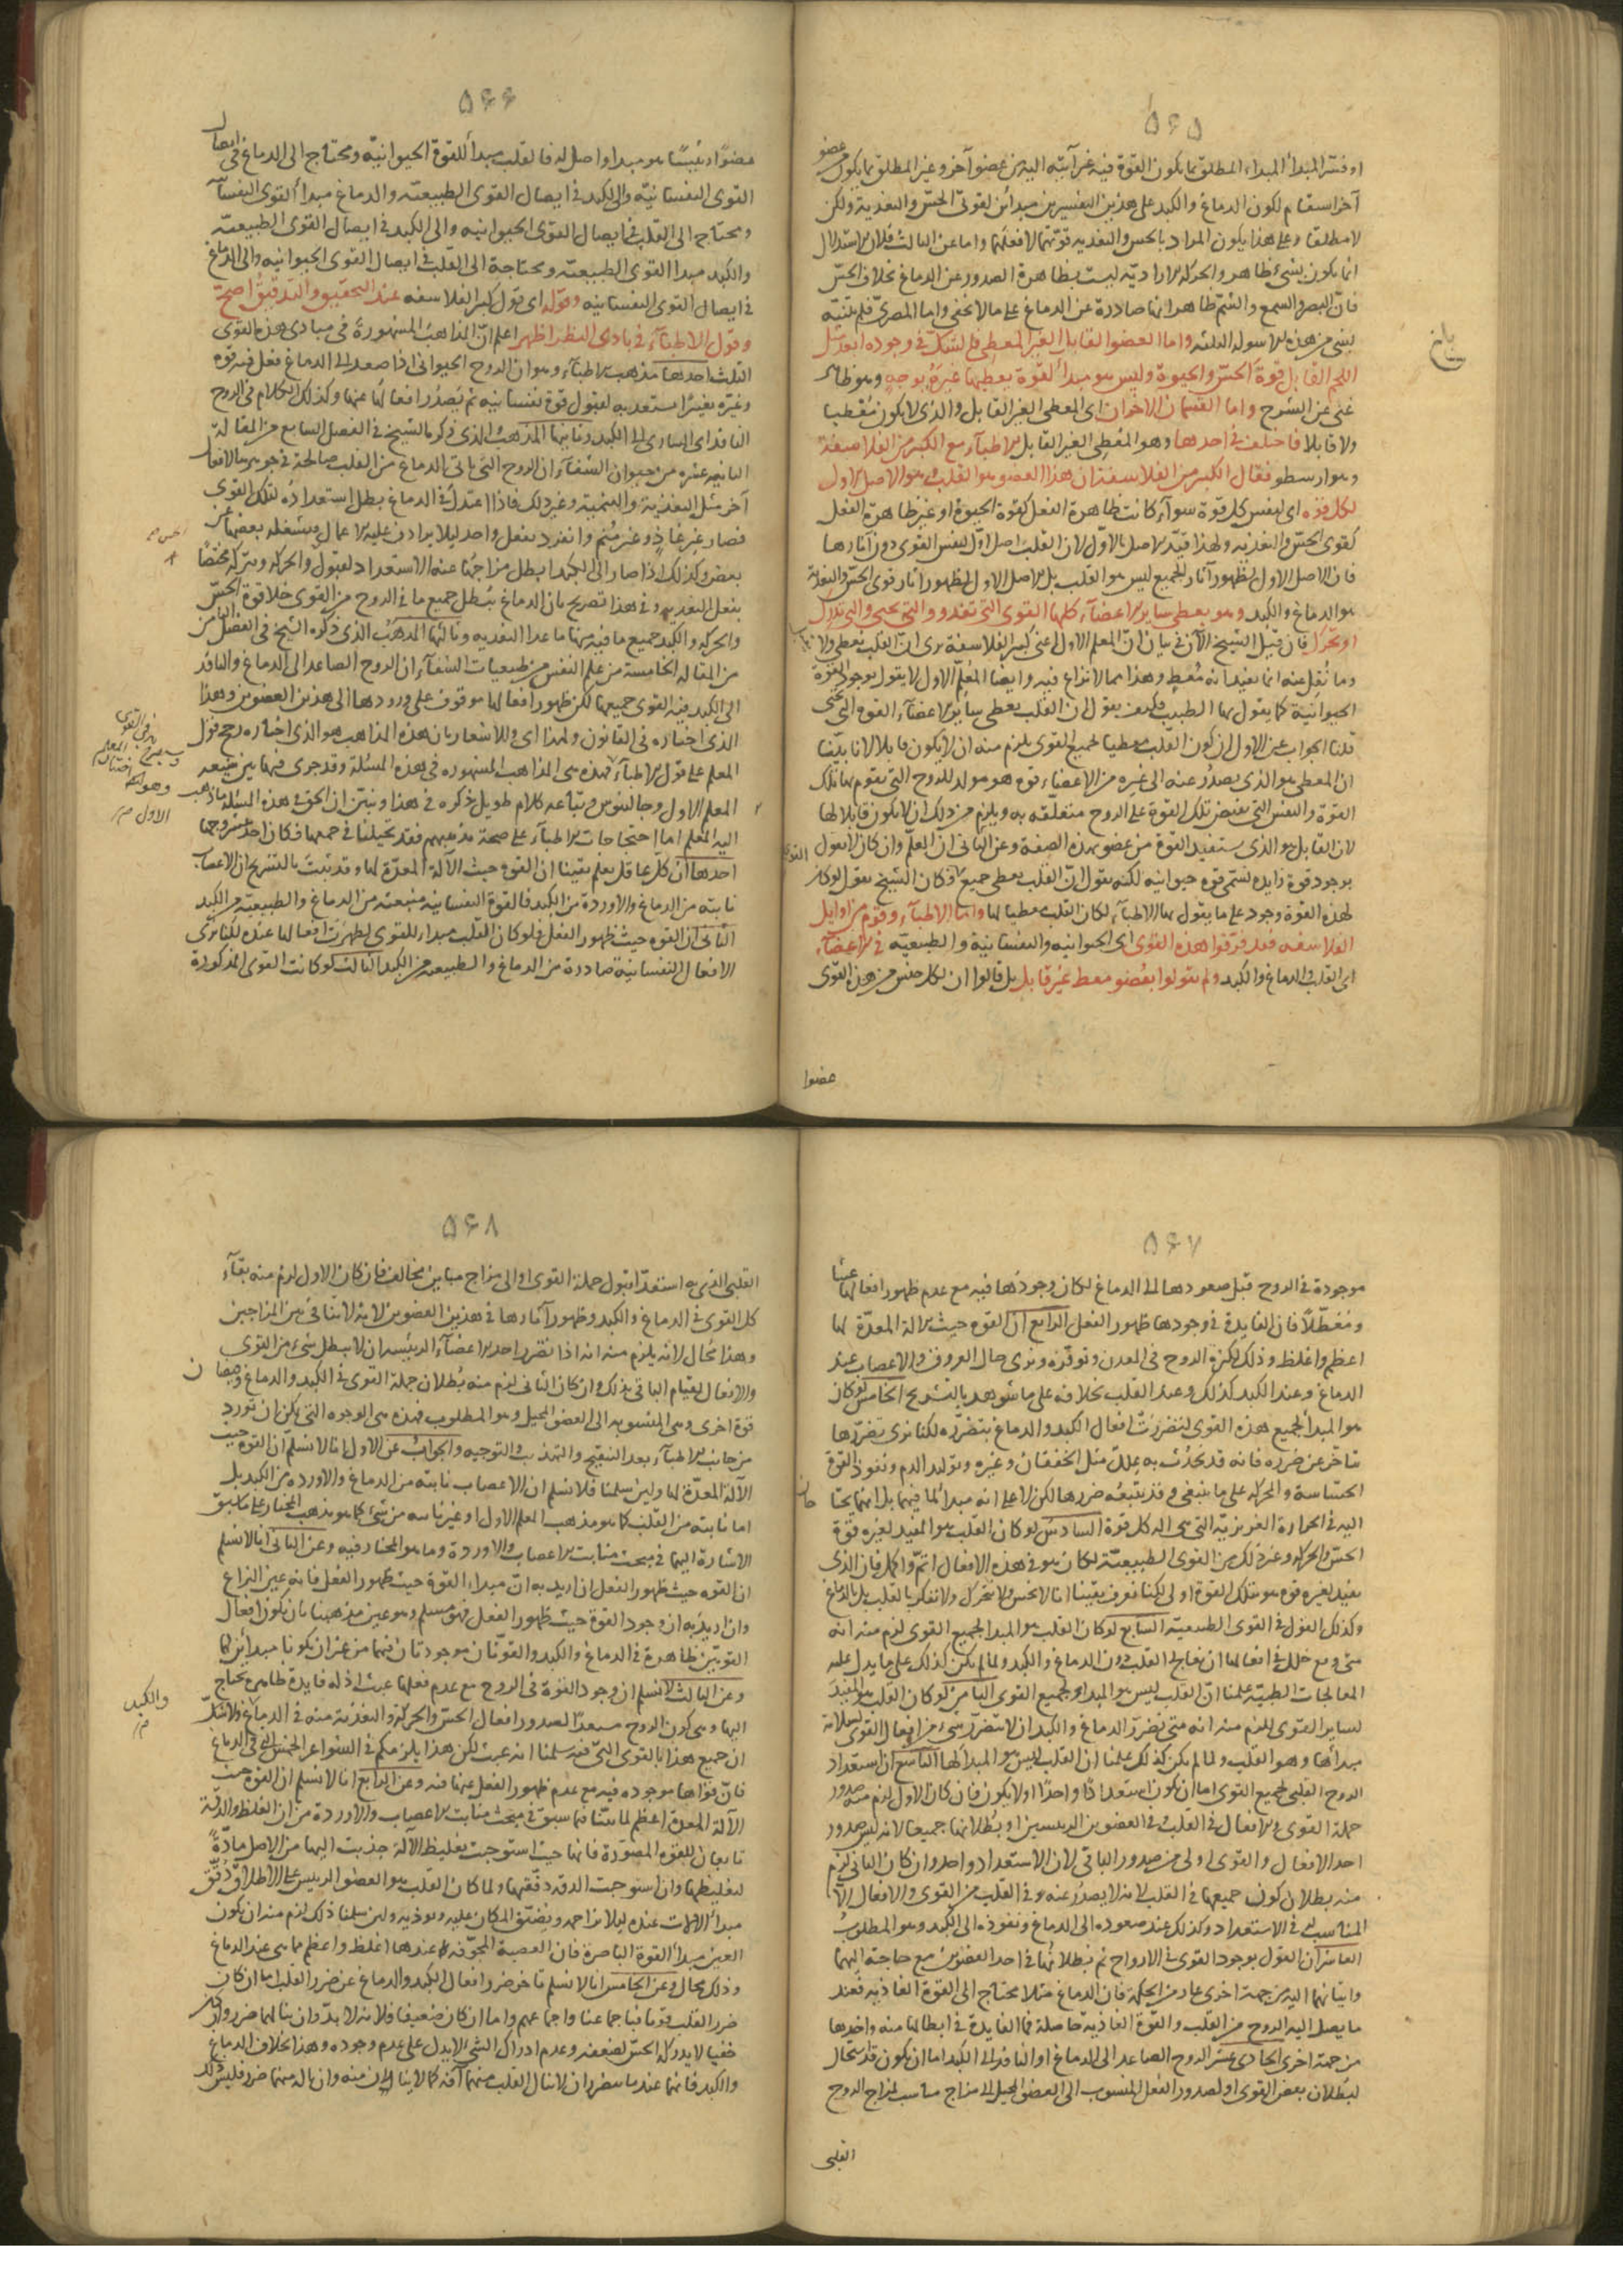 ٥٦٥
او فسّر المبدأ المبداء المطلق بما يكون القوة فيه غير آتية اليه من عضو آخر وغير المطلق بما يكون من عضو
آخر استقام لكون الدماغ والكبد على هذين التفسيرين مبدأين لقوتى الحسّ والتغذية ولكن
لا مطلقا وعلى هذا يكون المراد بالحس والتغذيه قوّتهما لا فعلهما واما عن الثالث فلان الاستدلال
انما يكون بشىء ظاهر والحركة الاراديّة ليست بظاهرة الصدور عن الدماغ بخلاف الحسّ
فانّ البصر والسمع والشم ظاهر انها صادرة عن الدماغ على ما لا يخفى واما المصرىّ فلم يتنبّه
بشىء من هذه الاسولة الثلثه واما العضو القابل الغير المعطى فلم يشكّ فى وجوده احد مثل
اللحم القابل قوة الحسّ والحيوة وليس هو مبدأ لقوة يعطيها غيره بوجه وهو ظاهر
غنى عن الشرح واما القسمان الاخران اى المعطى الغير القابل والذى لا يكون معطيا
ولا قابلا فاختلف فى احدهما وهو المعطى الغير القابل الاطباء مع الكبير من الفلاسفة
وهو ارسطو فقال الكبير من الفلاسفة ان هذا العضو هو القلب وهو الاصل الاول
لكل قوّه اى لنفس كل قوّة سوآء كانت ظاهرة الفعل كقوة الحيوة او غير ظاهرة الفعل
كقوى الحسّ والتغذيه ولهذا قيّد الاصل بالاوّل لان القلب اصل اوّل لنفس القوى دون آثارها
فان الاصل الاول لظهور آثار الجميع ليس هو القلب بل الاصل الاول لظهور آثار قوى الحسّ والتغذية
هو الدماغ والكبد وهو يعطى ساير الاعضآء كلها القوى التى تغذو والتى تحيى والتى تدرك
او تحرّك فان قيل الشيخ الآن فى بيان انّ المعلم الاول اعنى كبير الفلاسفة يرى انّ القلب يعطى ولا يقبل
وما نُقِل عنه انما يفيد انه مُعطٍ وهذا مما لا نزاع فيه وايضا المُعلّم الاول لا يقول بوجود القوة
الحيوانيّة كما يقول بها الطبيب فكيف يقول ان القلب يعطى ساير الاعضآء القوة التى تحيى
قلنا الجواب عن الاول ان كون القلب معطيا لجميع القوى يلزم منه ان لا يكون قابلا لانا بيّنا
ان المعطى هو الذى يصدُر عنه الى غيره من الاعضاء قوة هو مولد للروح التى يقوم بها تلك
القوة والنفس التى يفيض تلك القوة على الروح متعلّقه به ويلزم من ذلك ان لا يكون قابلا لها
لان القابل هو الذى يستفيد القوة من عضو بهذه الصفة وعن الثانى انّ المعلّم وان كان لا يقول
بوجود قوة زايده تسمّى قوه حيوانيه لكنه يقول انّ القلب يعطى جميع القوى فكان الشيخ يقول لو كان
لهذه القوة وجود على ما يقول بها الاطبآء لكان القلب معطيا لها واما الاطبآء وقوم من اوايل
الفلاسفه فقد فرّقوا هذه القوى اى الحيوانيه والنفسانية والطبيعيّه فى الاعضآء
اى القلب والدماغ والكبد ولم يقولوا بعُضو معط غير قابل بل قالوا ان لكل جنس من هذه القوى
عضوا
٥٦٦
عضوًا رئيسًا هو مبدا واصل له فالقلب مبدأ للقوة الحيوانيّه ومحتاج الى الدماغ فى ايصال
القوى النفسانيّه والى الكبد فى ايصال القوى الطبيعيّه والدماغ مبدأ القوى النفسانيه
ومحتاج الى القلب فى ايصال القوى الحيوانيه والى الكبد فى ايصال القوى الطبيعيّه
والكبد مبدا القوى الطبيعيّه ومحتاجة الى القلب فى ايصال القوى الحيوانيه والى الدماغ
فى ايصال القوى النفسانيه وقوله اى قول كبير الفلاسفه عند التحقيق والتدقيق اصح
وقول الاطبآء فى بادى النظر اظهر اعلم انّ المذاهب المشهورة فى مبادى هذه القوى
الثلث احدها مذهب الاطبآء وهو ان الروح الحيوانى اذا صعد الى الدماغ فعل فيه قوه
وغيّره تغييرًا يستعد به لقبول قوة نفسانيه ثم يَصدُر افعالها عنها وكذلك الكلام فى الروح
النافذ اى السارى الى الكبد وثانيها المذهب الذى ذكره الشيخ فى الفصل السابع من المقالة
الثانيه عشره من حيوان الشفآء ان الروح التى تاتى الدماغ من القلب صالحة فى جوهرها لافعال
آخر مثل التغذية والتنمية وغير ذلك فاذا اعتدل فى الدماغ بطل استعدادُه لتلك القوى
فصار غير غاذٍ وغير مُنمٍ وانفرد بفعل واحد ليلا يرادف عليه الاعمال ويشغله بعضها عن
بعض وكذلك اذا صار الى الكبد ابطل مزاجُها عنه الاستعداد لقبول والحركة ويتركه مختصًّا
بفعل التغذيه وفى هذا تصريح بان الدماغ يبطل جميع ما فى الروح من القوى خلا قوة الحسّ
والحركه والكبد جميع ما فيه منها ما عدا التغذيه وثالثها المذهب الذى ذكره الشيخ فى الفصل الثامن
من المقاله الخامسة من علم النفس من طبيعيات الشفآء ان الروح الصاعد الى الدماغ والنافذ
الى الكبد فيه القوى جميعها لكن ظهور افعالها موقوف على ورودها الى هذين العضوين وهذا
الذى اختاره فى القانون ولهذا اى وللاشعار بان هذه المذاهب هو الذى اختاره رجح قول
المعلم على قول الاطبآء فهذه هى المذاهب المشهوره فى هذه المسئلة وقد جرى فيها بين شيعه
المعلم الاول وجالينوس وتباعه كلام طويل ذكره فى هذا ونبين ان الحق فى هذه المسئله ما ذهب
اليه المعلم اما احتجاجات الاطبآء على صحة مذهبهم فقد تحيلنا فى جمعها فكان احد عشر وجها
احدها ان كلّ عاقل يعلم يقينا ان القوه حيث الآلة المعدّة لها وقد ثبت بالتشريح ان الاعصاب
نابته من الدماغ والاوردة من الكبد فالقوة النفسانيه منبعثه من الدماغ والطبيعيه من الكبد
الثانى ان القوه حيث ظهور الفعل فلو كان القلب مبداء للقوى لظهرت افعالها عنه لكنا نرى
الافعال النفسانية صادرة من الدماغ والطبيعيه من الكبد الثالث لو كانت القوى المذكورة
٥٦٧
موجودة فى الروح قبل صعودها الى الدماغ لكان وجودُها فيه مع عدم ظهور افعالها عبثًا
ومُعَطّلًا فان الفايدة فى وجودها ظهور الفعل الرابع ان القوه حيث الآلة المعدّة لها
اعظم واغلظ وذلك لكثرة الروح فى المعدن وتوفّره ونرى حال العروق والاعصاب عند
الدماغ وعند الكبد كذلك وعند القلب بخلافه على ما شوهد بالتشريح الخامس لو كان
هو المبدأ لجميع هذه القوى لتضررت افعال الكبد والدماغ بتضرّره لكنا نرى تضرّرها
يتاخر عن ضرره فانه قد يحدُث به عِلل مثل الخفقان وغيره وتولّد الدم ونفوذ القوة
الحسّاسة والحركة على ما ينبغى وقد يتبعُه ضررها لكن لا على انه مبدأ لما فيهما بل انهما يحتاجان
اليه فى الحرارة الغريزيّة التى هى آلة كل قوة السادسُ لو كان القلب هو المفيد لغيره قوة
الحسّ والحركة وغير ذلك من القوى الطبيعيّة لكان هو فى هذه الافعال اتمّ واكمل فان الذى
يفيد لغيره قوة هو بتلك القوة اولى لكنا نعرف يقينا انا لا نحس ولا نتحرك ولا نفكر بالقلب بل بالدماغ
وكذلك القول فى القوى الطبيعيّه السابع لو كان القلب هو المبدا لجميع القوى لزم منه انه
متى وقع خلل فى افعالها ان نعالج القلب دون الدماغ والكبد ولما لم يكن كذلك على ما يدل عليه
المعالجات الطبيّه علمنا انّ القلب ليس هو المبدا لجميع القوى الثامن لو كان القلب هو المفيد
لساير القوى للزم منه انه متى تضرّر الدماغ والكبد ان لا يتضرّر شىء من افعال القوى لسلامة
مبدأها وهو القلب ولما لم يكن كذلك علمنا ان القلب ليس هو المبدأ لها التاسع ان استعداد
الروح القلبى لجميع القوى اما ان يكون استعدادًا واحدًا او لا يكون فان كان الاول لزم منه صدور
جملة القوى والافعال فى القلب وفى العضوين الرئيسين او بُطلانها جميعا لانه ليس صدور
احد الافعال والقوى اولى من صدور الباقى لان الاستعداد واحد وان كان الثانى لزم
منه بطلان كون جميعها فى القلب لانه لا يصدُر عنه وفى القلب من القوى والافعال الّا
المناسب لے فى الاستعداد وكذلك عند صعوده الى الدماغ ونفوذه الى الكبد وهو المطلوبُ
العاشر ان القول بوجود القوى فى الارواح ثم بُطلانها فى احد العضوين مع حاجته اليها
واتيانها اليه من جهة اخرى عار من الحكمة فان الدماغ مثلا محتاج الى القوة الغاذيه فعند
ما يصل اليه الروح من القلب والقوة الغاذيه حاصلة فما الفايدة فى ابطالها منه واخذها
من جهة اخرى الحادى عشر الروح الصاعد الى الدماغ او النافذ الى الكبد اما ان يكون قد استحال
لبطلان بعض القوى او لصدور الفعل المنسوب الى العضو المحيل الى مزاج مناسب لمزاج الروح
القلبى
٥٦٨
القلبى الذى به استعدّ لقبول جملة القوى او الى مزاج مباين مخالف فان كان الاول لزم منه بقآء
كل القوى فى الدماغ والكبد وظهور آثارها فى هذين العضوين لانه لا تنافى بين المزاجين
وهذا مُحال لانه يلزم منه انه اذا تضرر احد الاعضآء الرئيسه ان لا يبطل شىء من القوى
والافعال لقيام الباقى بذلك وان كان الثانى لزم منه بُطلان جملة القوى فى الكبد والدماغ
قوة اخرى وهى المنسوبه الى العضو المحيل وهو المطلوب فهذه هى الوجوه التى يمكن ان تُورد
من جانب الاطبآء بعد التنقيح والتهذيب والتوجيه والجواب عن الاول انا لا نسلم ان القوه حيث
الآلة المعدّة لها ولئن سلمنا فلا نسلم ان الاعصاب نابته من الدماغ والاوردة من الكبد بل
اما نابته من القلب كما هو مذهب المعلم الاول او غير نابته من شىء كما هو مذهب المختار على ما سبق
الاشارة اليها فى مبحث منابت الاعصاب والاوردة وما هو المختار فيه وعن الثانى انا لا نسلم
ان القوه حيث ظهور الفعل ان اريد به انّ مبداء القوة حيث ظهور الفعل فانه عين النزاع
وان اريد به ان وجود القوة حيث ظهور الفعل فهو مسلم وهو عين مذهبنا بان يكون افعال
القوتين ظاهرة فى الدماغ والكبد والقوتان موجودتان فيهما من غير ان يكونا مبدأين لها
وعن الثالث لا نسلم ان وجود القوة فى الروح مع عدم فعلها عبث اذ له فايدة ظاهرة يحتاج
اليها وهى كون الروح مستعدًّا لصدور افعال الحسّ والحركة والتغذية منه فى الدماغ والكبد ولا شكّ
ان جميع هذا بالقوى التى فيه سلمنا انه عبث لكن هذا يلزمكم فى الشواعر الخمس التى فى الدماغ
فانّ قواها موجوده فيه مع عدم ظهور الفعل عنها فيه وعن الرابع انا لا نسلم ان القوه حيث
الآلة المعدة اعظم لما بيّنا فيما سبق فى مبحث منابت الاعصاب والاوردة من ان الغلظ والدقّة
تابعان للقوه المصوّرة فانها حيث استوجبت تغليظ الآلة جذبت اليها من الاصل مادّةً
لتغليظها وان استوجبت الدقه دقّقتها ولما كان القلب هو العضو الرئيس على الاطلاق دقّق
مبدأ الالات عنده ليلا يزاحمه ويُضيّق المكان عليه ويوذيه ولئن سلمنا ذلك لزم منه ان يكون
العين مبدأ القوة الباصرة فان العصبة المجوّفة عندها اغلظ واعظم مما هى عند الدماغ
وذلك محال وعن الخامس انا لا نسلم تاخر ضرر افعال الكبد والدماغ عن ضرر القلب اما ان كان
ضرر القلب قويا فباجماعنا واجماعهم واما ان كان ضعيفا فلانه لا بدّ وان ينالهما ضرر ولو كان
خفيا لا يدركه الحسّ لضعفه وعدم ادراك الشىء لا يدل على عدم وجوده وهذا بخلاف الدماغ